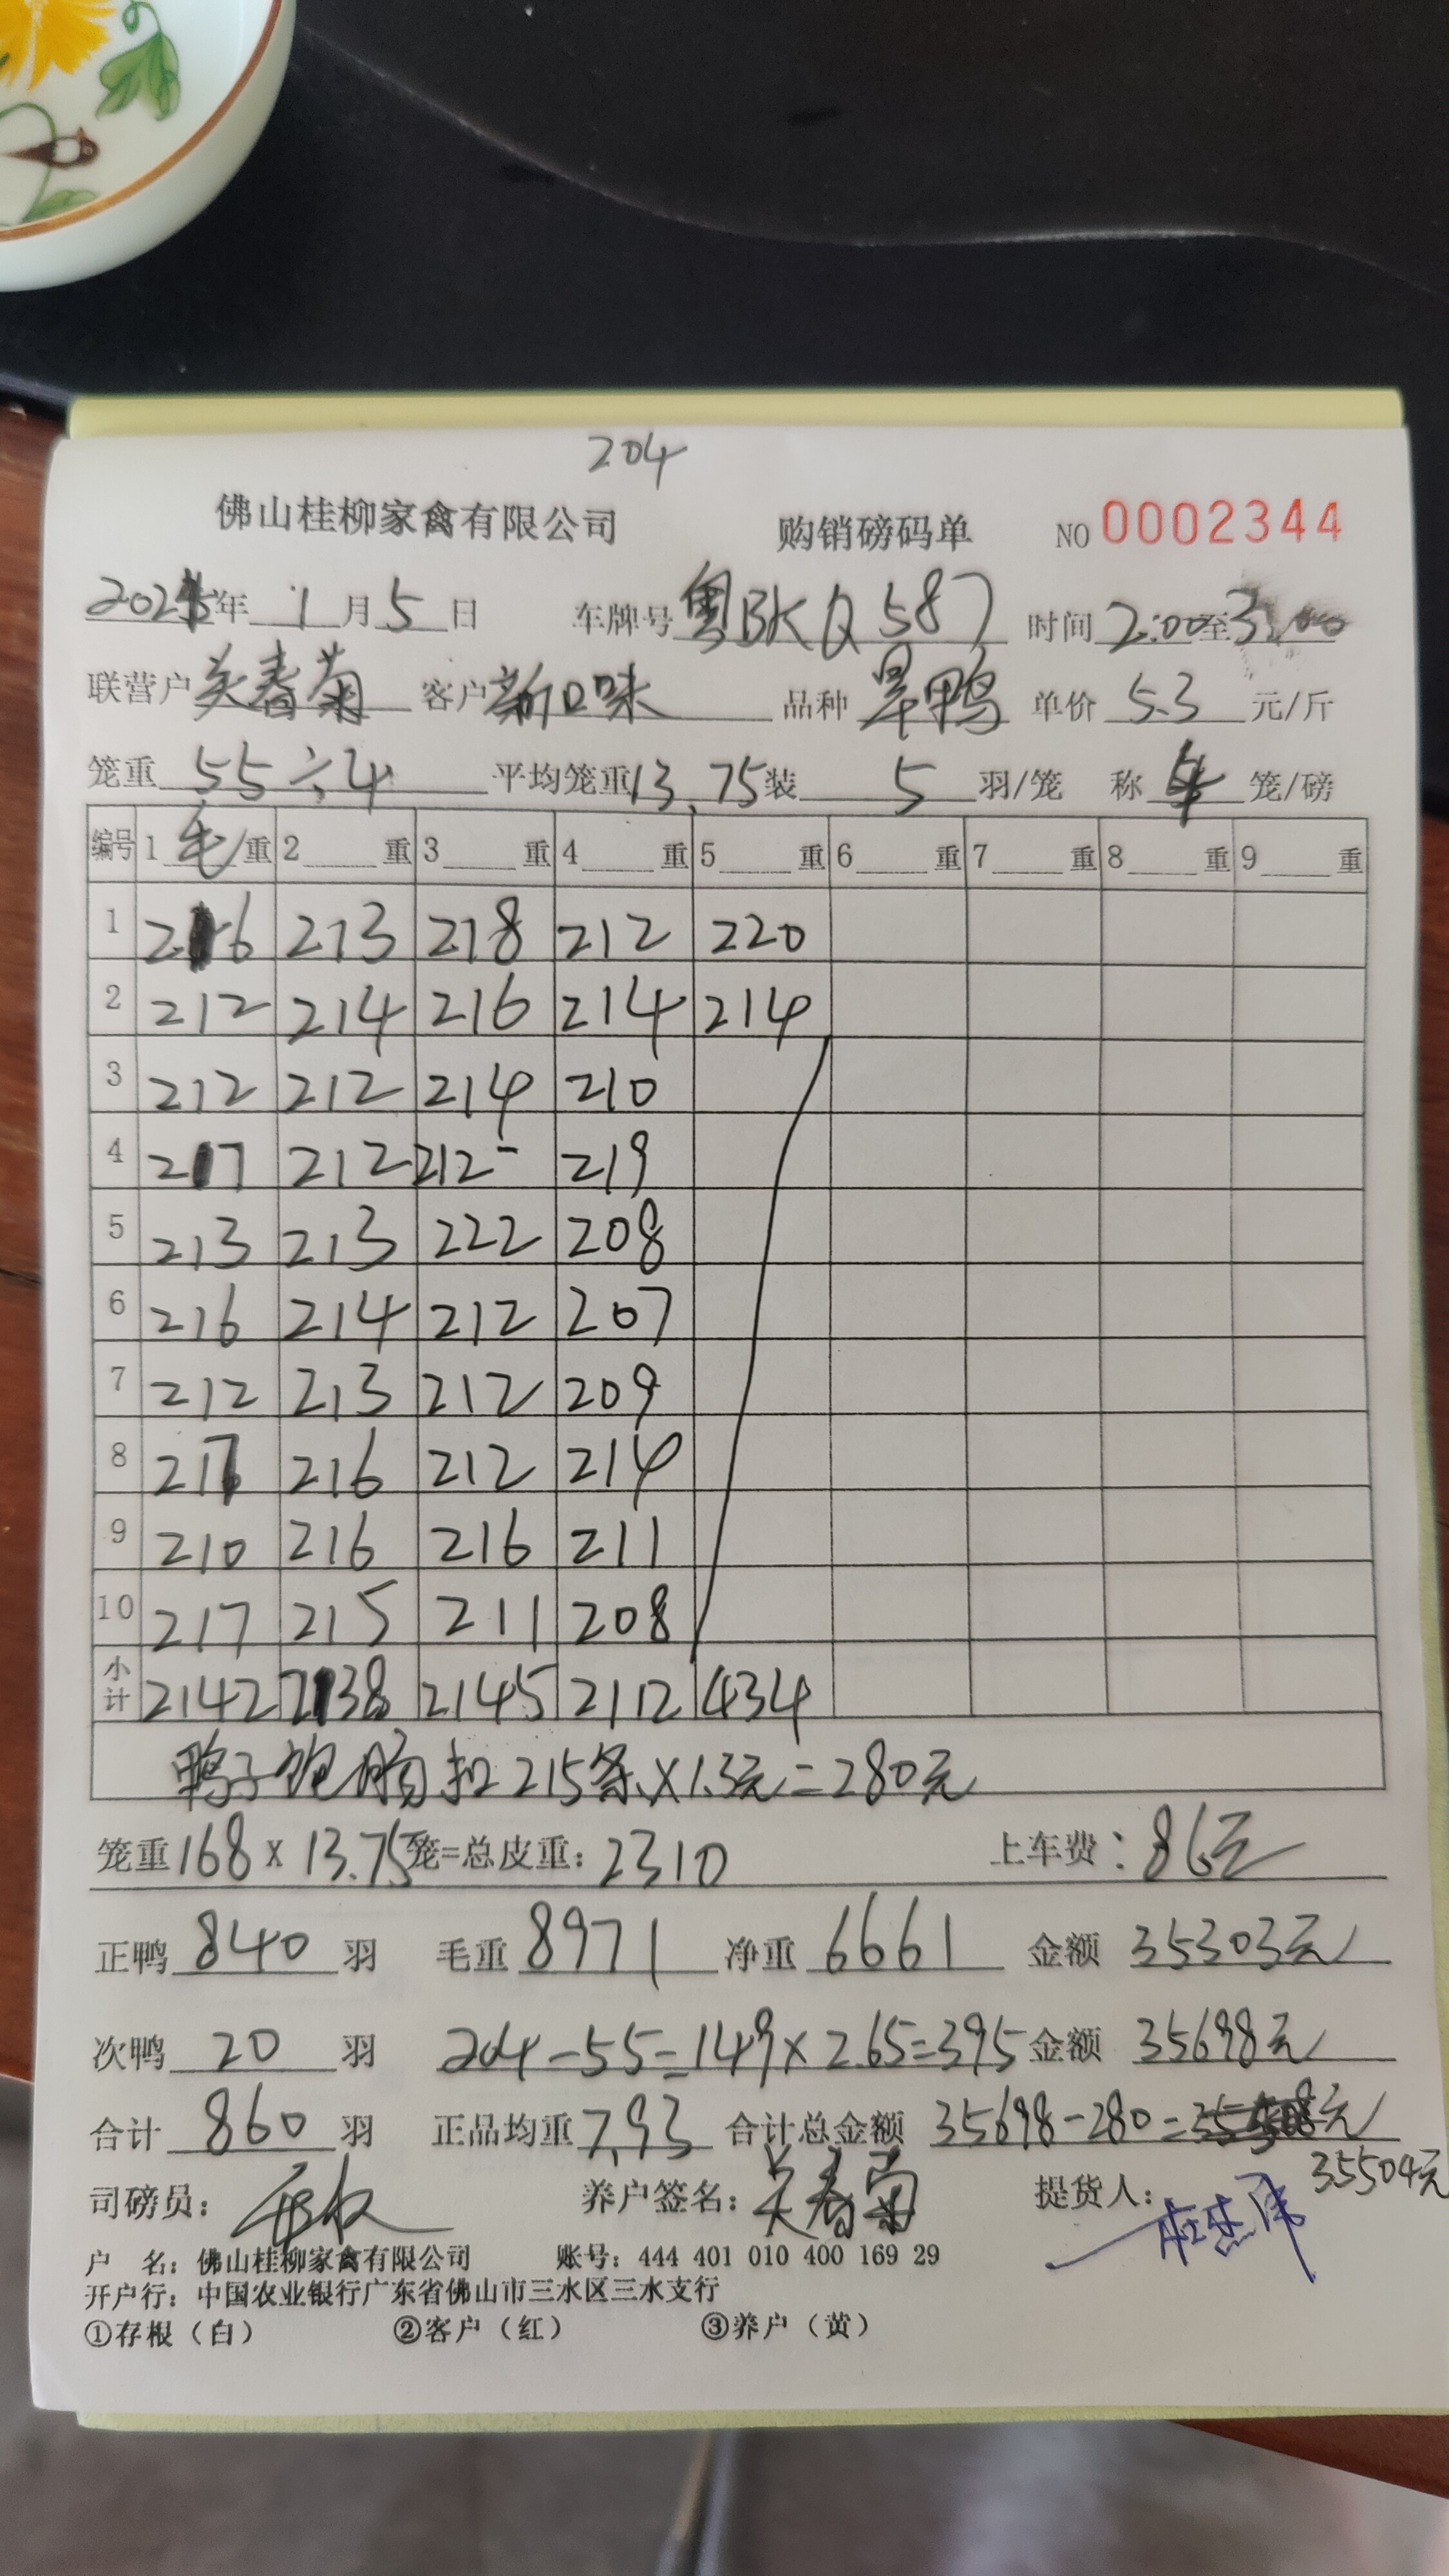 204
佛山桂柳家禽有限公司 购销磅码单 NO 0002344
2025年 1月5日 车牌号 粤BKQ587 时间 2:00至3:00
联营户 关春菊 客户 新口味 品种 旱鸭 单价 5.3 元/斤
笼重 55÷4 平均笼重 13.75 装 5 羽/笼 称 4 笼/磅
编号 1 毛 重 2 重 3 重 4 重 5 重 6 重 7 重 8 重 9 重
1 216 213 218 212 220
2 212 214 216 214 214
3 212 212 214 210
4 217 212 212 219
5 213 213 222 208
6 216 214 212 207
7 212 213 212 209
8 217 216 212 214
9 210 216 216 211
10 217 215 211 208
小计 2142 2138 2145 2112 434
鸭子饱肠扣215条×1.3元=280元
笼重 168 × 13.75 笼=总皮重: 2310 上车费: 86元
正鸭 840 羽 毛重 8971 净重 6661 金额 35303元
次鸭 20 羽 204-55=149×2.65=395 金额 35698元
合计 860 羽 正品均重 7.93 合计总金额 35698-280= 元
35504元
司磅员: 养户签名: 关春菊 提货人:
户 名: 佛山桂柳家禽有限公司 账号: 444 401 010 400 169 29
开户行: 中国农业银行广东省佛山市三水区三水支行
①存根（白） ②客户（红） ③养户（黄）